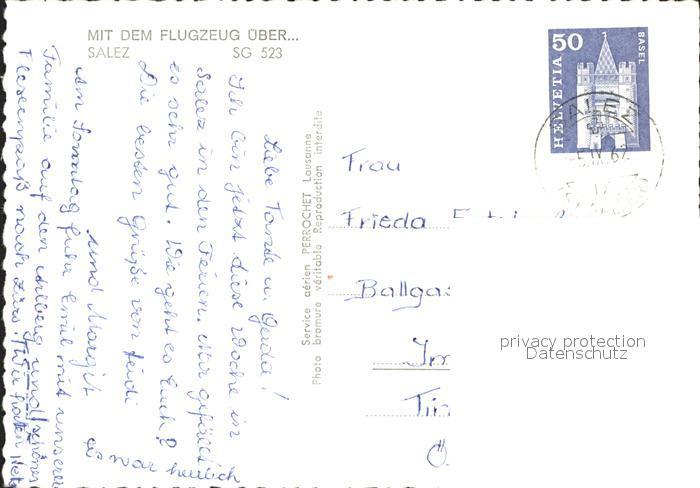 MIT DEM FLUGZEUG ÜBER...
SALEZ SG 523
Liebe Tante u. Gerda!
Ich bin jetzt diese Woche in
Salez in den Ferien. Mir gefällt
es sehr gut. Wie geht es Euch?
Die besten Grüße von Heidi
und Margit
Am Sonntag fuhr Emil mit unserer
Familie auf den Arlberg und
Flexenpaß nach Zürs.
Es war herrlich
Service aérien PERROCHET Lausanne
Photo bromure véritable Reproduction interdite
HELVETIA 50
BASEL
SALEZ
Frau
Frieda
Ballga
Im
Ö
privacy protection
Datenschutz